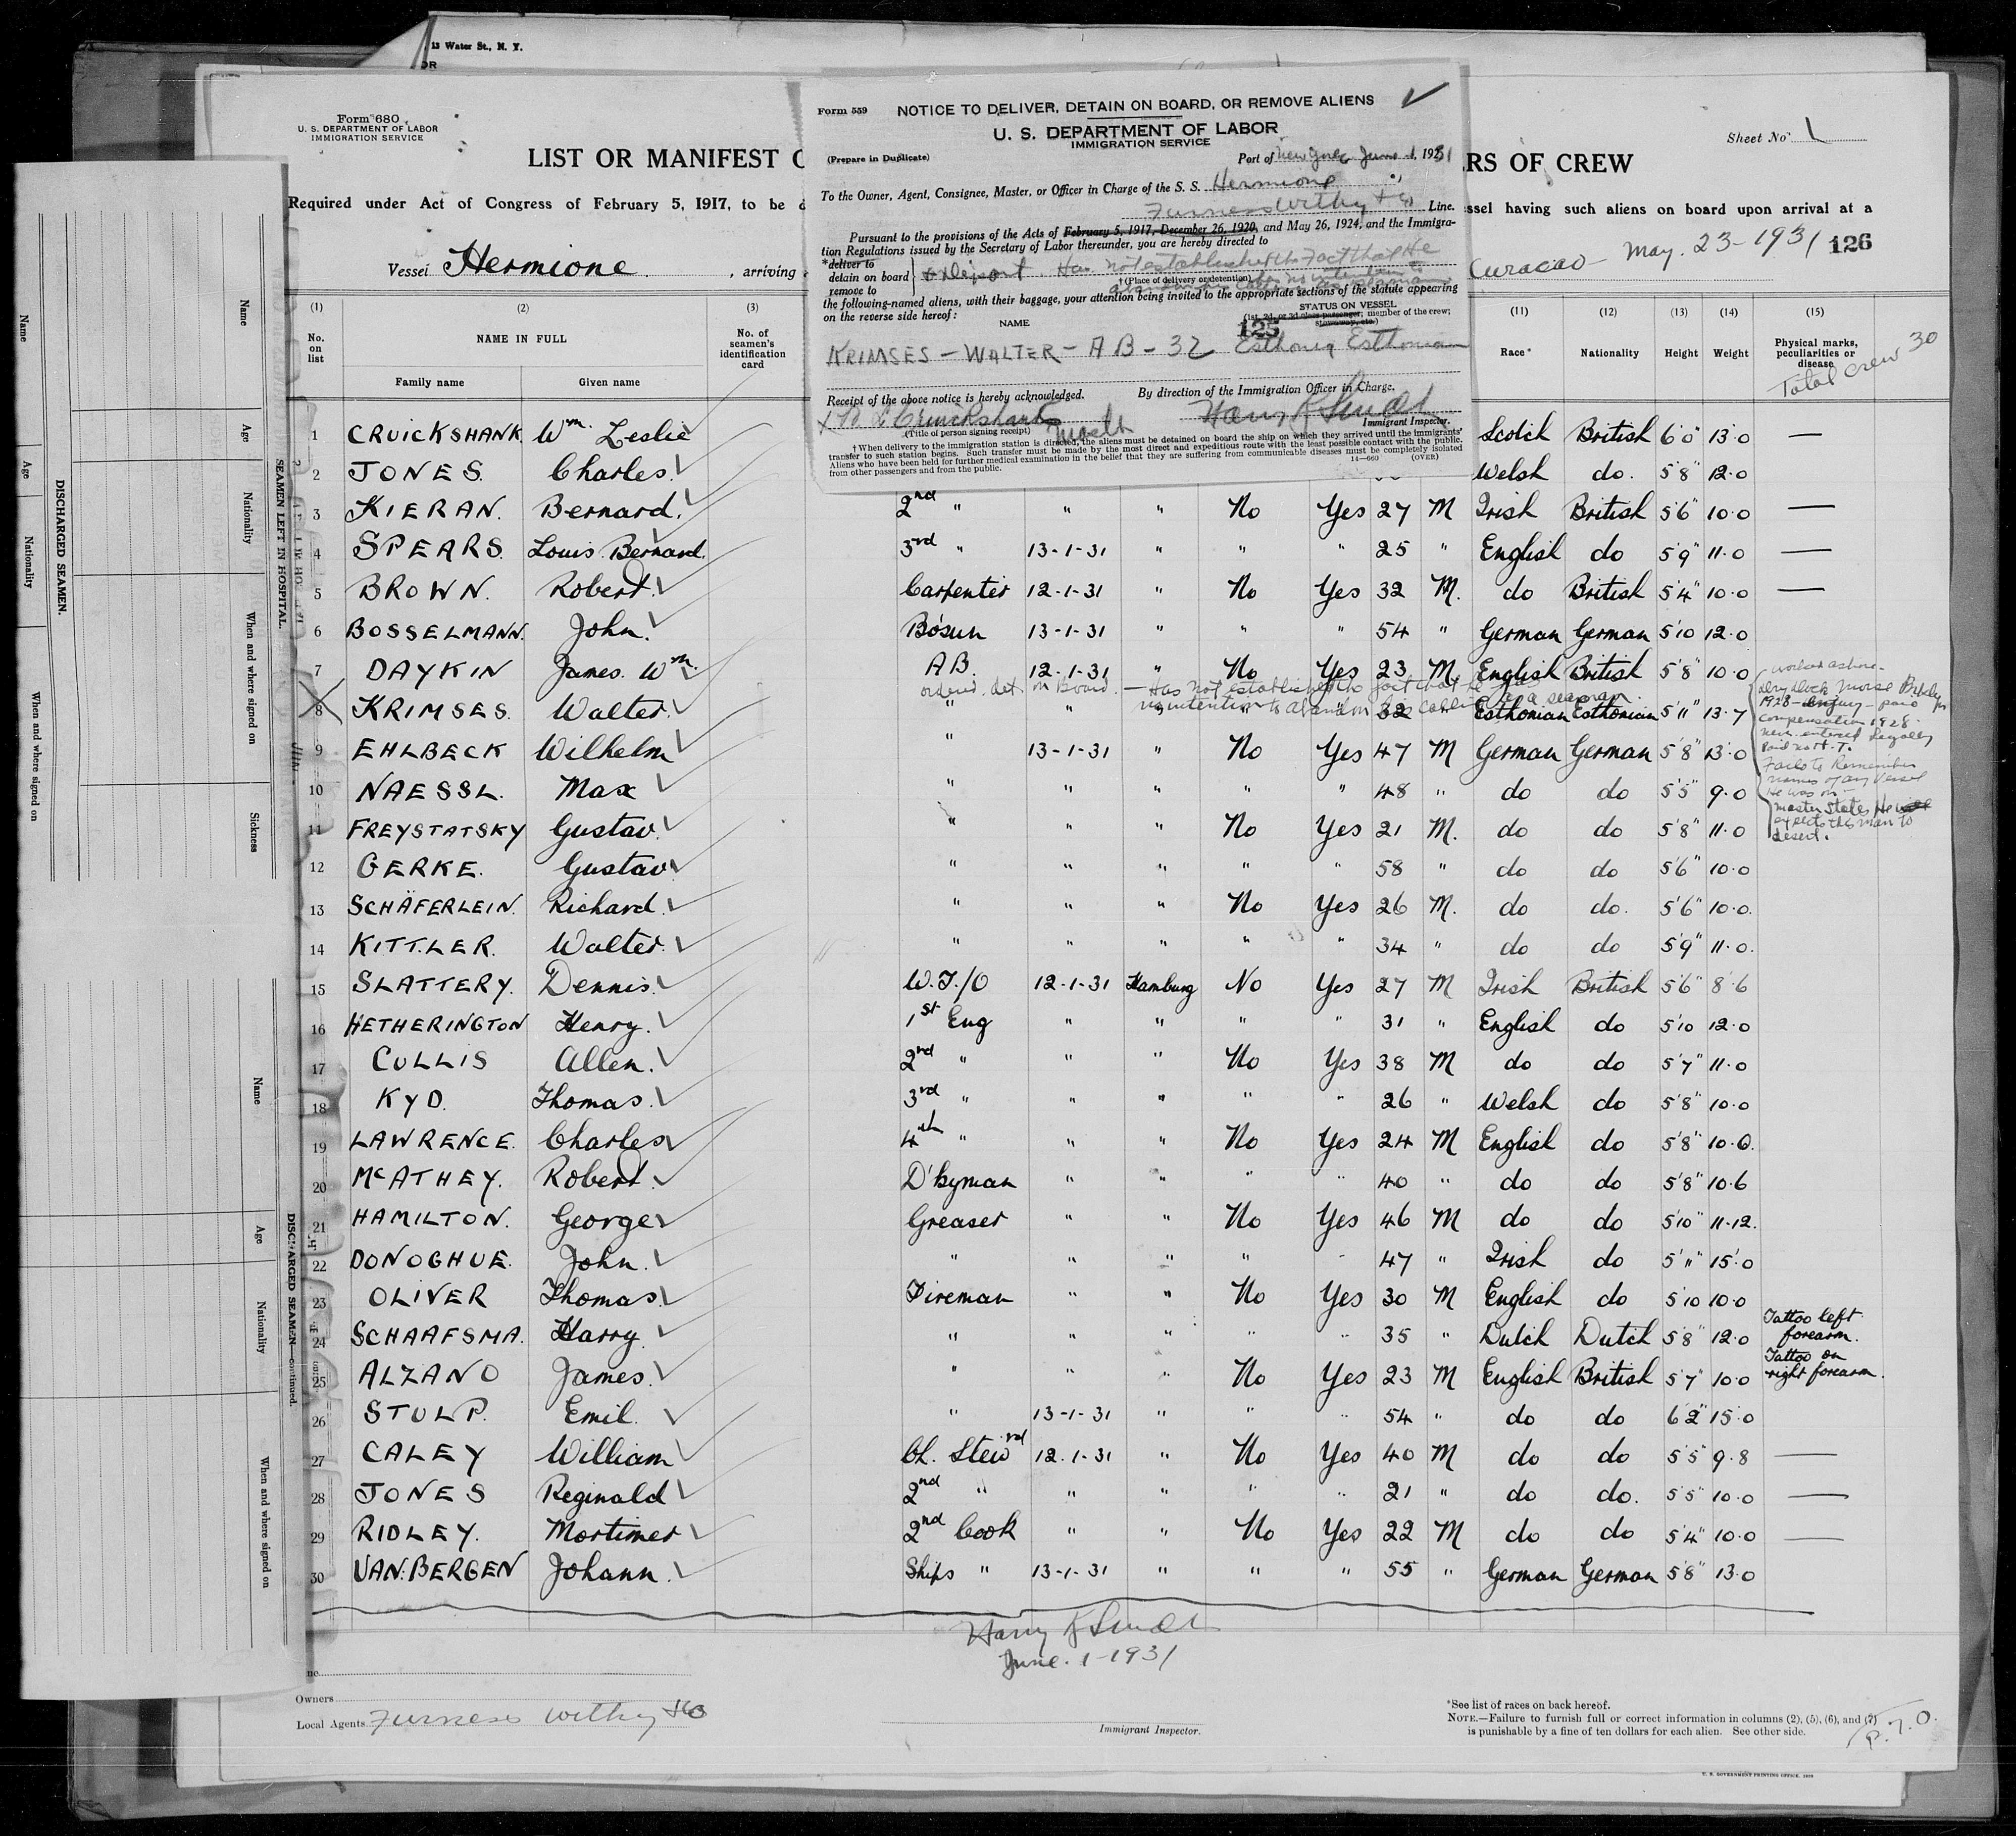 13 Water St., N. Y.
OR
Form 680
U. S. DEPARTMENT OF LABOR
IMMIGRATION SERVICE
LIST OR MANIFEST O
RS OF CREW
Sheet No 1
Required under Act of Congress of February 5, 1917, to be d
ssel having such aliens on board upon arrival at a
Vessel Hermione , arriving
Curacao - May. 23-1931 126
Form 559 NOTICE TO DELIVER, DETAIN ON BOARD, OR REMOVE ALIENS
U. S. DEPARTMENT OF LABOR
IMMIGRATION SERVICE
(Prepare in Duplicate)
Port of New York June 1, 1931
To the Owner, Agent, Consignee, Master, or Officer in Charge of the S. S. Hermione
Furness Withy & Co Line.
Pursuant to the provisions of the Acts of February 5, 1917, December 26, 1920, and May 26, 1924, and the Immigra-
tion Regulations issued by the Secretary of Labor thereunder, you are hereby directed to
*deliver to
detain on board & Deport. Has not established the fact that He
remove to
†(Place of delivery or detention)
the following-named aliens, with their baggage, your attention being invited to the appropriate sections of the statute appearing
on the reverse side hereof:
STATUS ON VESSEL
NAME
(1st, 2d, or 3d class passenger; member of the crew;
stowaway, etc.)
125
KRIMSES - WALTER - AB - 32 Esthonia Esthonian
Receipt of the above notice is hereby acknowledged.
By direction of the Immigration Officer in Charge.
W L Cruickshank Master
Harry K
(Title of person signing receipt)
Immigrant Inspector.
†When delivery to the immigration station is directed, the aliens must be detained on board the ship on which they arrived until the immigrants'
transfer to such station begins. Such transfer must be made by the most direct and expeditious route with the least possible contact with the public.
Aliens who have been held for further medical examination in the belief that they are suffering from communicable diseases must be completely isolated
from other passengers and from the public.
14—660 (OVER)
(1) (2) (3) (11) (12) (13) (14) (15)
No. on list
NAME IN FULL
Family name Given name
No. of seamen's identification card
Race* Nationality Height Weight
Physical marks, peculiarities or disease
Total Crew 30
1 CRUICKSHANK. Wm. Leslie Scotch British 6'0" 13·0 —
2 JONES. Charles. Welsh do. 5'8" 12·0
3 KIERAN. Bernard. 2nd " " " No Yes 27 M Irish British 5'6" 10·0 —
4 SPEARS. Louis Bernard. 3rd " 13-1-31 " " " 25 " English do 5'9" 11·0 —
5 BROWN. Robert. Carpenter 12-1-31 " No Yes 32 M. do British 5'4" 10·0 —
6 BOSSELMANN. John. Bosun 13-1-31 " " " 54 " German German 5'10 12·0
7 DAYKIN James. Wm. AB. 12-1-31 " No Yes 23 M English British 5'8" 10·0
ordered det. on Board. - Has not established the fact that he has
no intention to abandon his calling as a seaman.
8 KRIMSES. Walter. " " " " " 32 " Esthonian Esthonian 5'11" 13·7
worked ashore -
Dry Dock Morse Bklyn
1928 - injury - paid
compensation 1928.
never entered Legally
Paid no H.T.
Fails to Remember
names of any Vessel
He was on -
master states He
expects this man to
desert.
9 EHLBECK Wilhelm " 13-1-31 " No Yes 47 M German German 5'8" 13·0
10 NAESSL. Max " " " " " 48 " do do 5'5" 9·0
11 FREYSTATSKY Gustav. " " " No Yes 21 M. do do 5'8" 11·0
12 GERKE. Gustav. " " " " " 58 " do do 5'6" 10·0
13 SCHÄFERLEIN. Richard. " " " No Yes 26 M. do do. 5'6" 10·0.
14 KITTLER. Walter. " " " " " 34 " do do 5'9" 11·0.
15 SLATTERY. Dennis. W.T./O 12-1-31 Hamburg No Yes 27 M Irish British 5'6" 8·6
16 HETHERINGTON Henry. 1st Eng " " " " 31 " English do 5'10 12·0
17 CULLIS Allen. 2nd " " " No Yes 38 M do do 5'7" 11·0
18 KYD. Thomas. 3rd " " " " " 26 " Welsh do 5'8" 10·0
19 LAWRENCE. Charles 4th " " " No Yes 24 M English do 5'8" 10·0.
20 McATHEY. Robert. D'kyman " " " " 40 " do do 5'8" 10·6
21 HAMILTON. George Greaser " " No Yes 46 M do do 5'10" 11·12.
22 DONOGHUE. John. " " " " " 47 " Irish do 5'11" 15·0
23 OLIVER Thomas. Fireman " " No Yes 30 M English do 5'10 10·0
24 SCHAAFSMA. Harry. " " " " " 35 " Dutch Dutch 5'8" 12·0 Tattoo left forearm.
25 ALZANO James. " " " No Yes 23 M English British 5'7" 10·0 Tattoo on right forearm.
26 STULP. Emil. " 13-1-31 " " " 54 " do do 6'2" 15·0
27 CALEY William Ch. Steward 12.1-31 " No Yes 40 M do do 5'5" 9·8 —
28 JONES Reginald 2nd " " " " " 21 " do do. 5'5" 10·0 —
29 RIDLEY. Mortimer 2nd Cook " " No Yes 22 M do do 5'4" 10·0 —
30 VAN.BERGEN Johann. Ships " 13-1-31 " " " 55 " German German 5'8" 13·0
Harry K
June. 1-1931
Owners
Local Agents Furness Withy & Co
Immigrant Inspector.
*See list of races on back hereof.
NOTE.—Failure to furnish full or correct information in columns (2), (5), (6), and (7)
is punishable by a fine of ten dollars for each alien. See other side.
P.T.O.
U. S. GOVERNMENT PRINTING OFFICE
Name
Age
Nationality
When and where signed on
DISCHARGED SEAMEN.
Name
Age
Nationality
When and where signed on
Sickness
SEAMEN LEFT IN HOSPITAL.
Name
Age
Nationality
When and where signed on
DISCHARGED SEAMEN—continued.